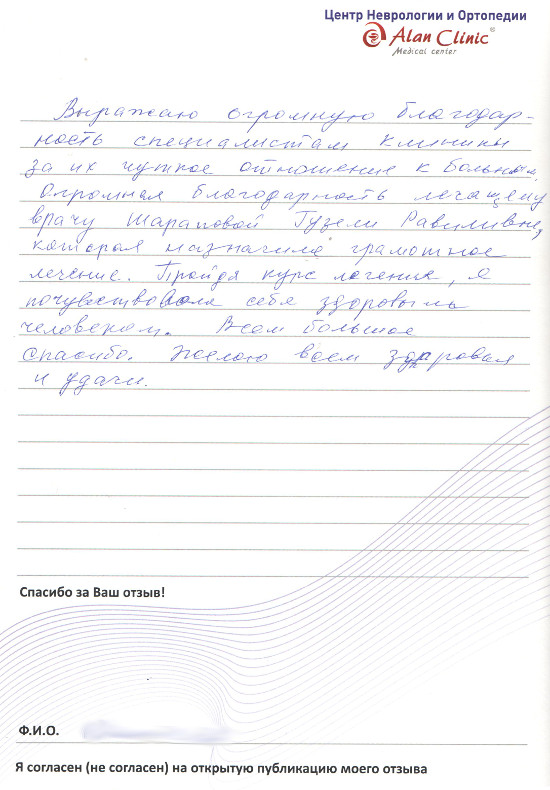 Центр Неврологии и Ортопедии
Alan Clinic®
Medical center
Выражаю огромную благодар-
ность специалистам клиники
за их чуткое отношение к больным.
Огромная благодарность лечащему
врачу Шараповой Гузели Равилевне,
которая назначила грамотное
лечение. Пройдя курс лечения, я
почувствовала себя здоровым
человеком. Всем большое
спасибо. Желаю всем здоровья
и удачи.
Спасибо за Ваш отзыв!
Ф.И.О.
Я согласен (не согласен) на открытую публикацию моего отзыва